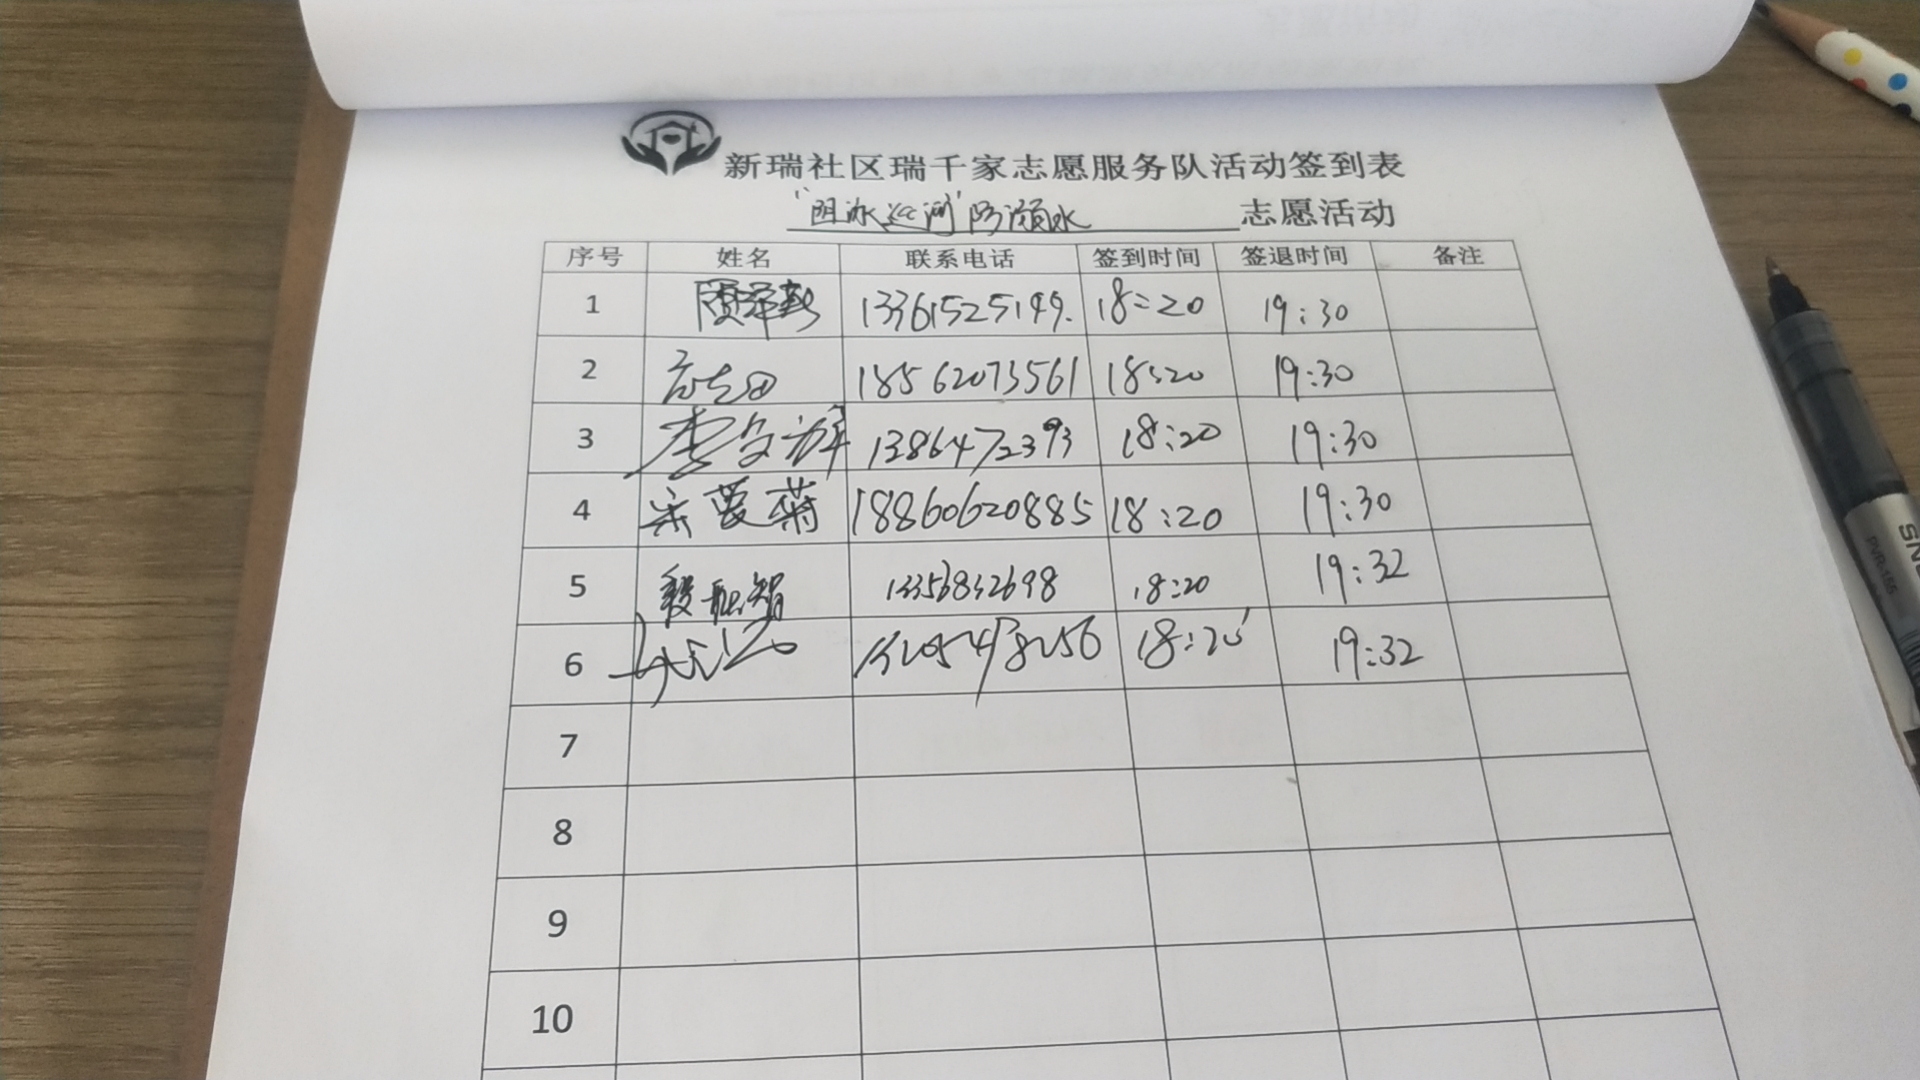 新瑞社区瑞千家志愿服务队活动签到表
防溺水 志愿活动
序号 姓名 联系电话 签到时间 签退时间 备注
1 13361525149. 18:20 19:30
2 18562073561 18:20 19:30
3 李文 13864772393 18:20 19:30
4 宋爱菊 18860620885 18:20 19:30
5 13356832698 18:20 19:32
6 18:20 19:32
7
8
9
10